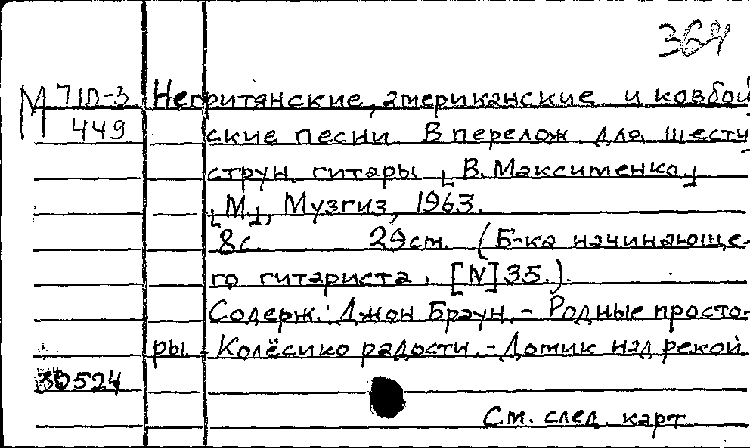 364
М 71D-3 Негритянские, американские и ковбой
449 ские песни. В перелож. для шести
струн. гитары [В. Максименко]
[М.], Музгиз, 1963.
8с. 29см. (Б-ка начинающе-
го гитариста. [N] 35.)
Содерж.: Джон Браун. - Родные просто-
ры. - Колёсико радости. - Домик над рекой
30524
См. след. карт.